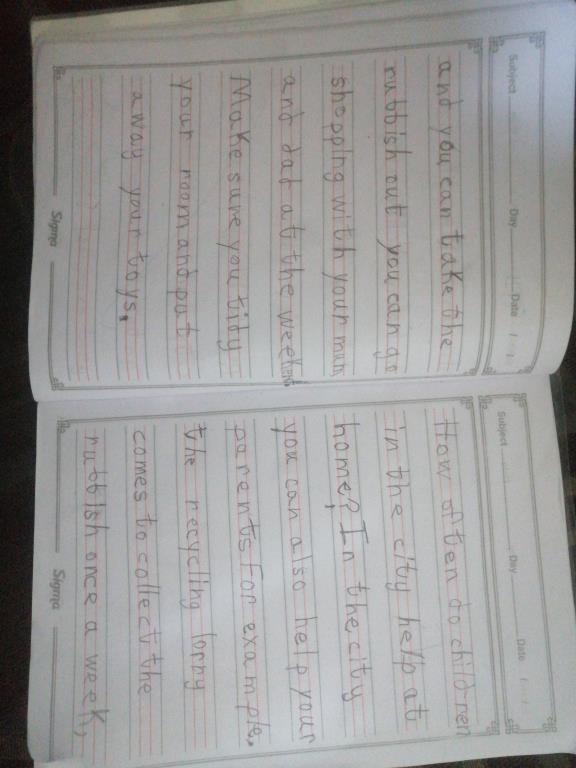 Subject Day Date / /
How often do children
in the city help at
home? In the city
you can also help your
parents for example.
the recycling lorry
comes to collect the
rubbish once a week,
Sigma
Subject Day Date / /
and you can take the
rubbish out you can go
shopping with your mum
and dad at the weekend.
Make sure you tidy
your room and put
away your toys.
Sigma